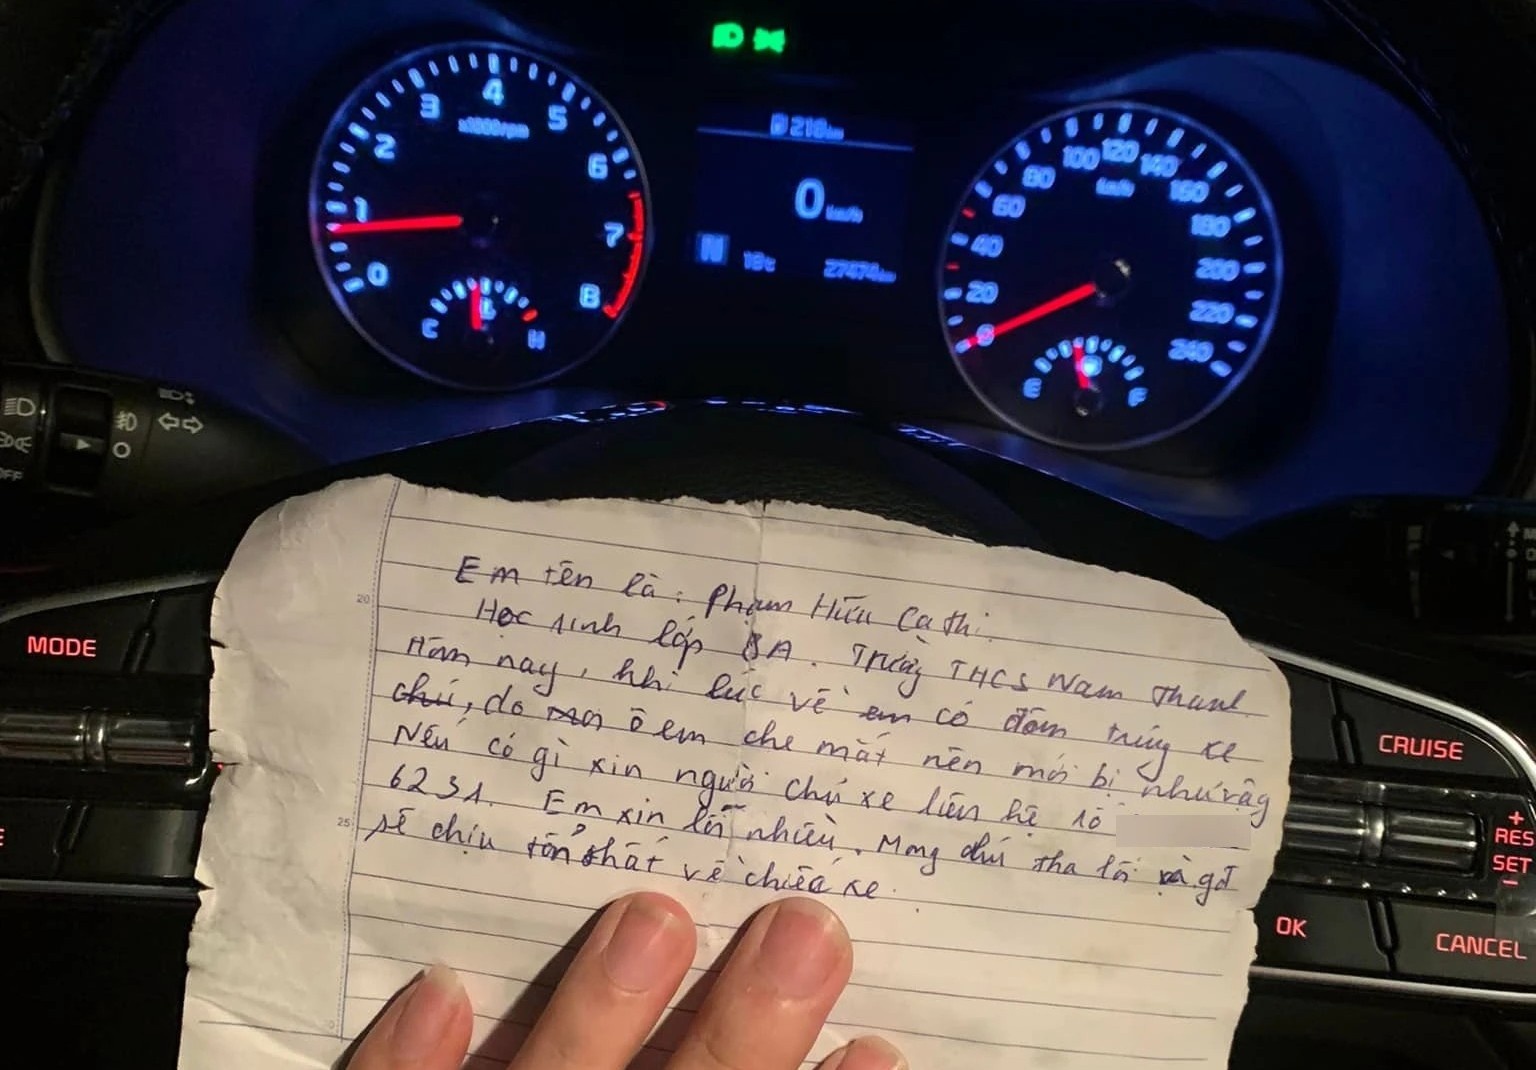 x1000rpm
0 1 2 3 4 5 6 7 8
C H
218km
0 km/h
N 18°C 27474km
km/h
0 20 40 60 80 100 120 140 160 180 200 220 240
E F
OFF
MODE
CRUISE
+
RES
SET
-
OK
CANCEL
20
25
Em tên là: Phạm Hữu Ca thi.
Học sinh lớp 8A. Trường THCS Nam Thanh
Hôm nay, khi lúc về em có đâm trúng xe
chú, do ô em che mắt nên mới bị như vậy
Nếu có gì xin người chủ xe liên hệ số
6231. Em xin lỗi nhiều. Mong chú tha lỗi và gđ
sẽ chịu tổn thất về chiếc xe.